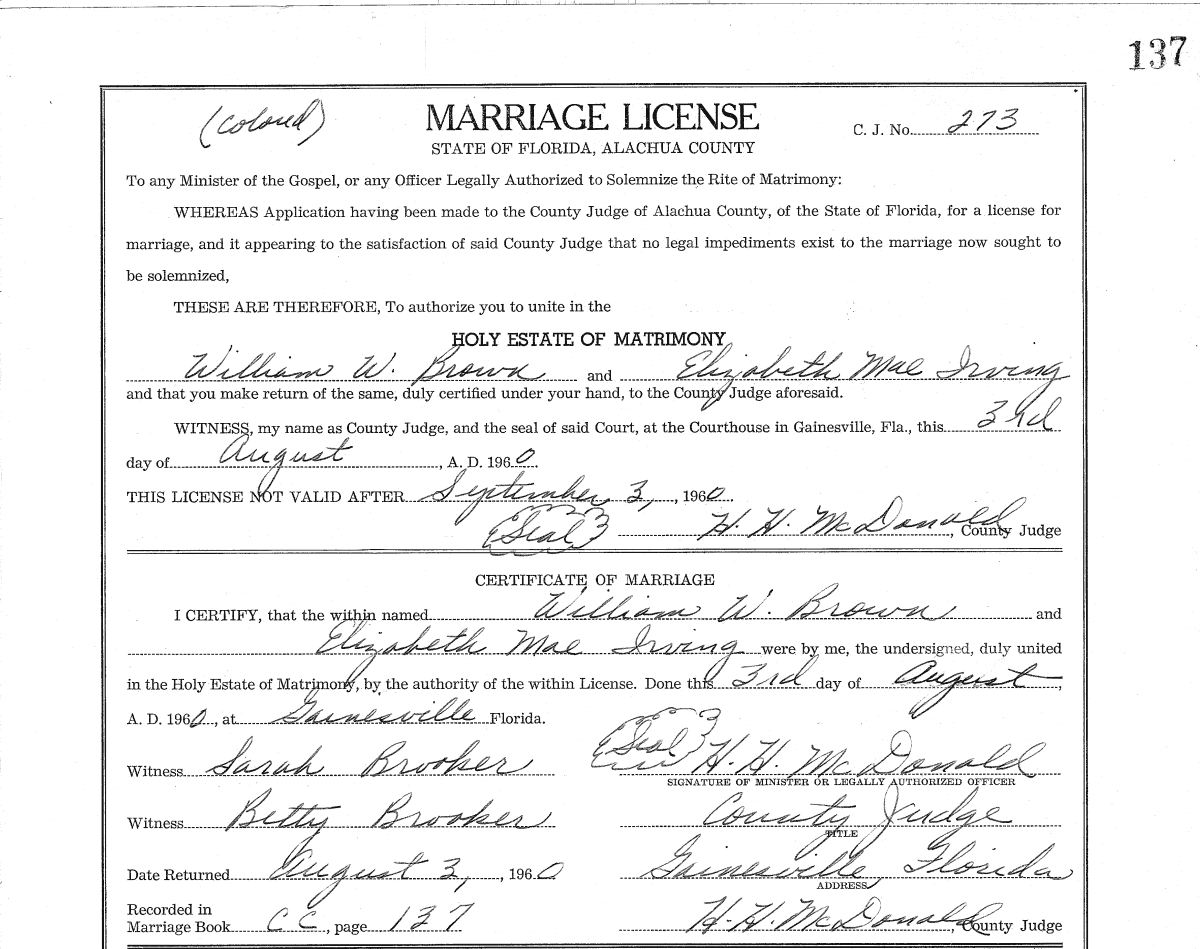 137
(colored)
MARRIAGE LICENSE
C. J. No. 273
STATE OF FLORIDA, ALACHUA COUNTY
To any Minister of the Gospel, or any Officer Legally Authorized to Solemnize the Rite of Matrimony:
WHEREAS Application having been made to the County Judge of Alachua County, of the State of Florida, for a license for
marriage, and it appearing to the satisfaction of said County Judge that no legal impediments exist to the marriage now sought to
be solemnized,
THESE ARE THEREFORE, To authorize you to unite in the
HOLY ESTATE OF MATRIMONY
William W. Brown and Elizabeth Mae Irving
and that you make return of the same, duly certified under your hand, to the County Judge aforesaid.
WITNESS, my name as County Judge, and the seal of said Court, at the Courthouse in Gainesville, Fla., this 3rd
day of August, A. D. 1960.
THIS LICENSE NOT VALID AFTER September 3, 1960.
(Seal) H. H. McDonald, County Judge
CERTIFICATE OF MARRIAGE
I CERTIFY, that the within named William W. Brown and
Elizabeth Mae Irving were by me, the undersigned, duly united
in the Holy Estate of Matrimony, by the authority of the within License. Done this 3rd day of August,
A. D. 1960, at Gainesville Florida.
Witness Sarah Brooker (Seal) H. H. McDonald
SIGNATURE OF MINISTER OR LEGALLY AUTHORIZED OFFICER
Witness Betty Brooker County Judge
TITLE
Date Returned August 3, 1960 Gainesville, Florida
ADDRESS
Recorded in
Marriage Book CC, page 137 H. H. McDonald, County Judge